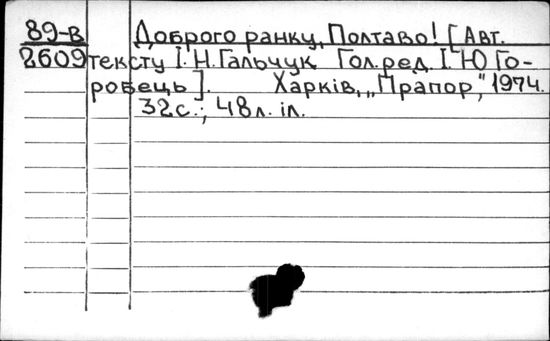 89-в Доброго ранку, Полтаво! [Авт.
2609 тексту І. Н. Гальчук Гол. ред. І. Ю Го-
ровець]. Харків, „Прапор", 1974.
32 с.; 48 л. іл.